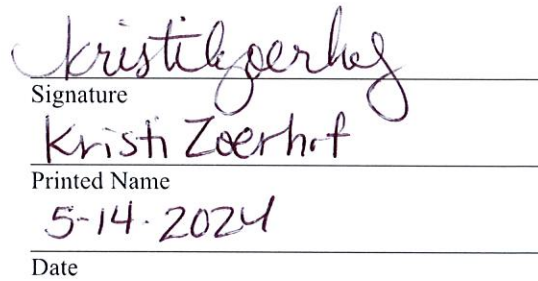 Kristi Zoerhof
Signature
Kristi Zoerhof
Printed Name
5-14-2024
Date